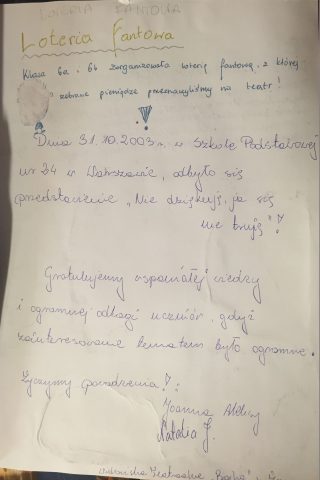 LOTERIA FANTOWA
Loteria Fantowa
Klasa 6a i 6b zorganizowała loterię fantową, z której
zebrane pieniądze przeznaczyliśmy na teatr!
Dnia 31.10.2003 r. w Szkole Podstawowej
nr 24 w Warszawie, odbyło się
przedstawienie „Nie dziękuję, ja się
nie truję"!
Gratulujemy wspaniałej wiedzy
i ogromnej odwagi uczniów, gdyż
zainteresowanie tematem było ogromne.
Życzymy powodzenia!
Joanna
Natalia J.